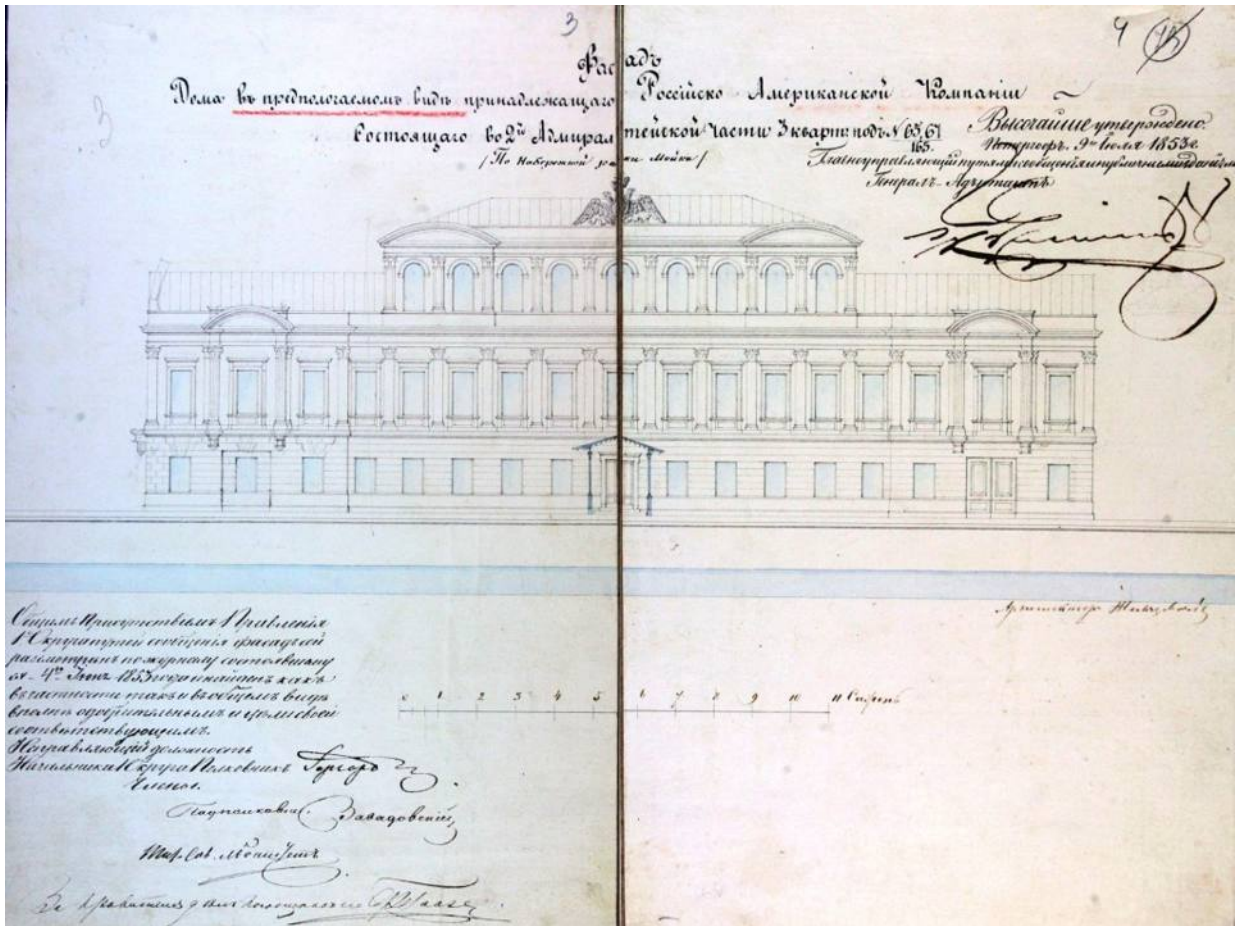 3
4 13
3
Фасадъ
Дома въ предпологаемомъ видѣ принадлежащаго Россійско Американской Компаніи
Состоящаго во 2й Адмиралтейской части 3 кварт: подъ № 65, 67
165.
/ По Набережной рѣки Мойки /
Высочайше утверждено.
Петергофъ. 9го Іюля 1853 г.
Главноуправляющій путями сообщенія и публичными зданіями
Генералъ-Адъютантъ
Архитекторъ
Общимъ Присутствіемъ Правленія
1 Округа путей сообщенія фасадъ сей
разсмотрѣнъ по журналу состоявшему
4го 1853 года и найденъ какъ
въ частности такъ и въ общемъ видѣ
вполнѣ одобрительнымъ и цѣли своей
соотвѣтствующимъ.
Исправляющій должность
Начальника 1 Округа Полковникъ
Члены.
Подполковникъ Завадовскій
0 1 2 3 4 5 6 7 8 9 10 11 Саженъ